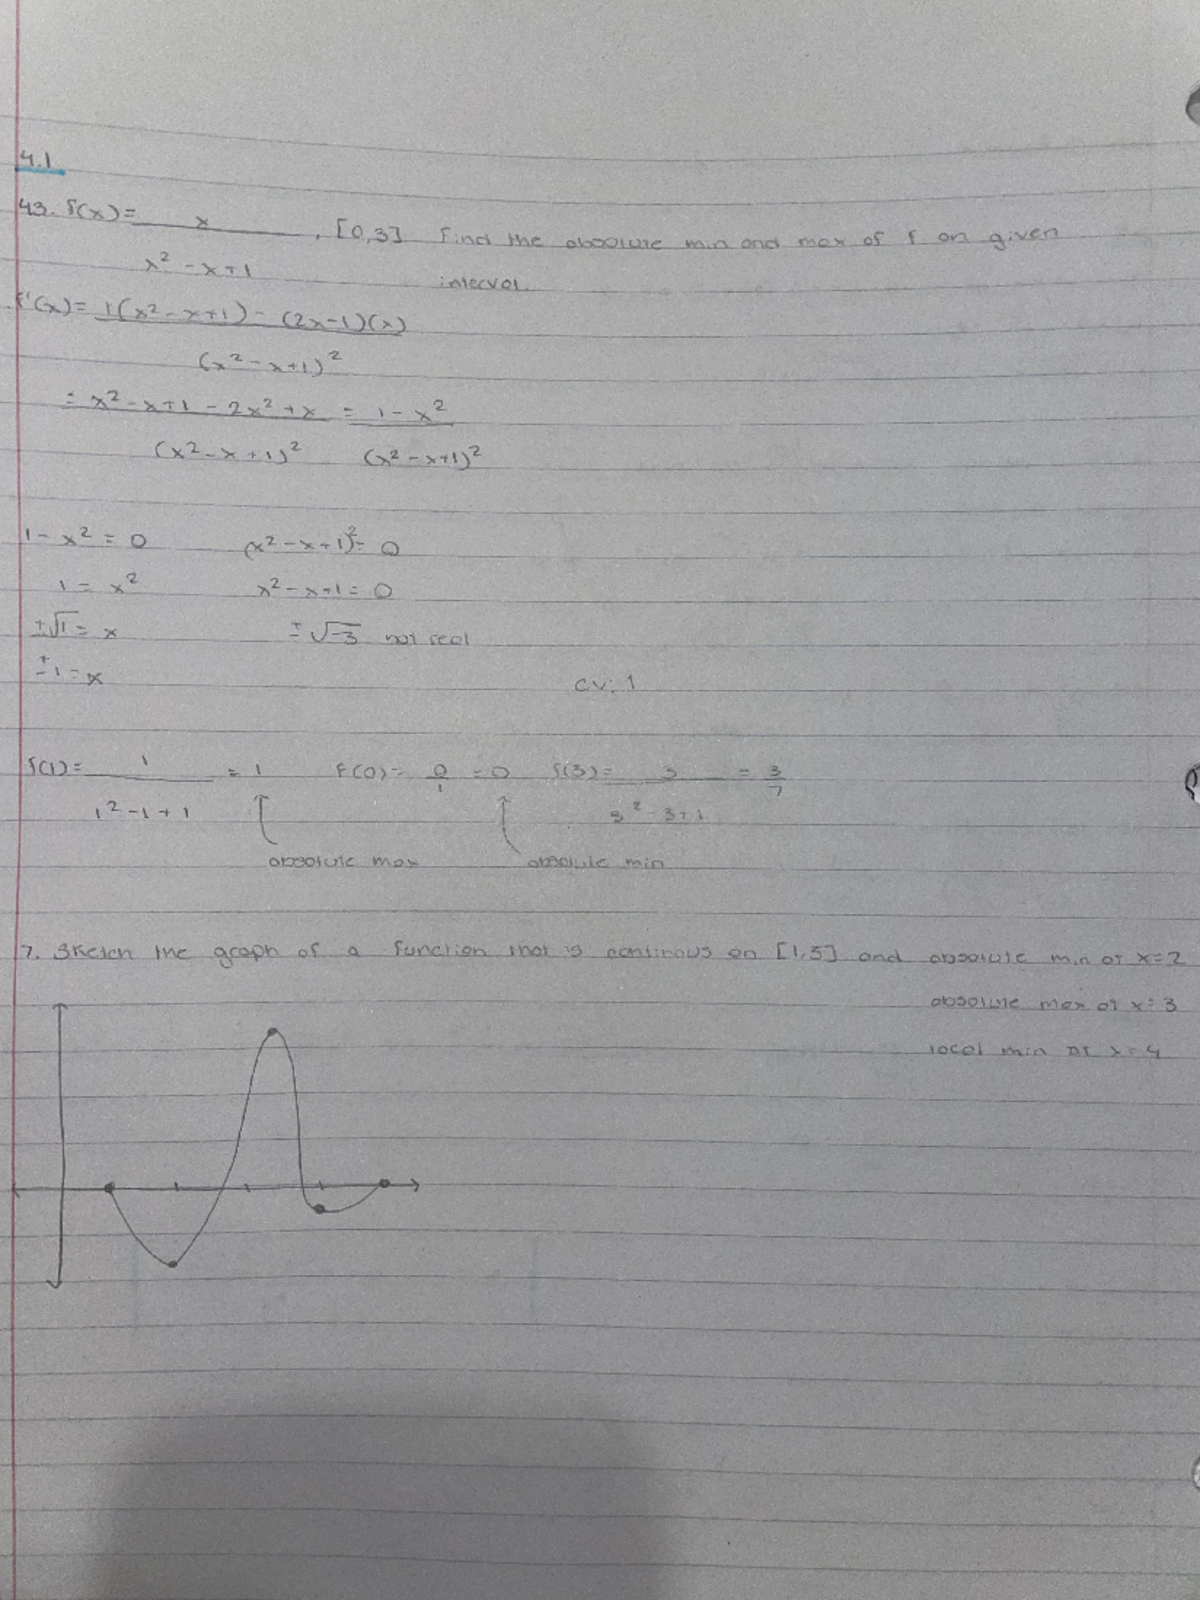 4.1
43. f(x) = x / x² - x + 1 , [0,3] Find the absolute min and max of f on given
interval.
f'(x) = 1(x² - x + 1) - (2x - 1)(x) / (x² - x + 1)²
= x² - x + 1 - 2x² + x / (x² - x + 1)² = 1 - x² / (x² - x + 1)²
1 - x² = 0 (x² - x + 1)² = 0
1 = x² x² - x + 1 = 0
±√1 = x ±√-3 not real
±1 = x cv: 1
f(1) = 1 / 1² - 1 + 1 = 1 f(0) = 0/1 = 0 f(3) = 3 / 3² - 3 + 1 = 3/7
absolute max absolute min
7. Sketch the graph of a function that is continous on [1,5] and absolute min at x=2
absolute max at x=3
local min at x=4